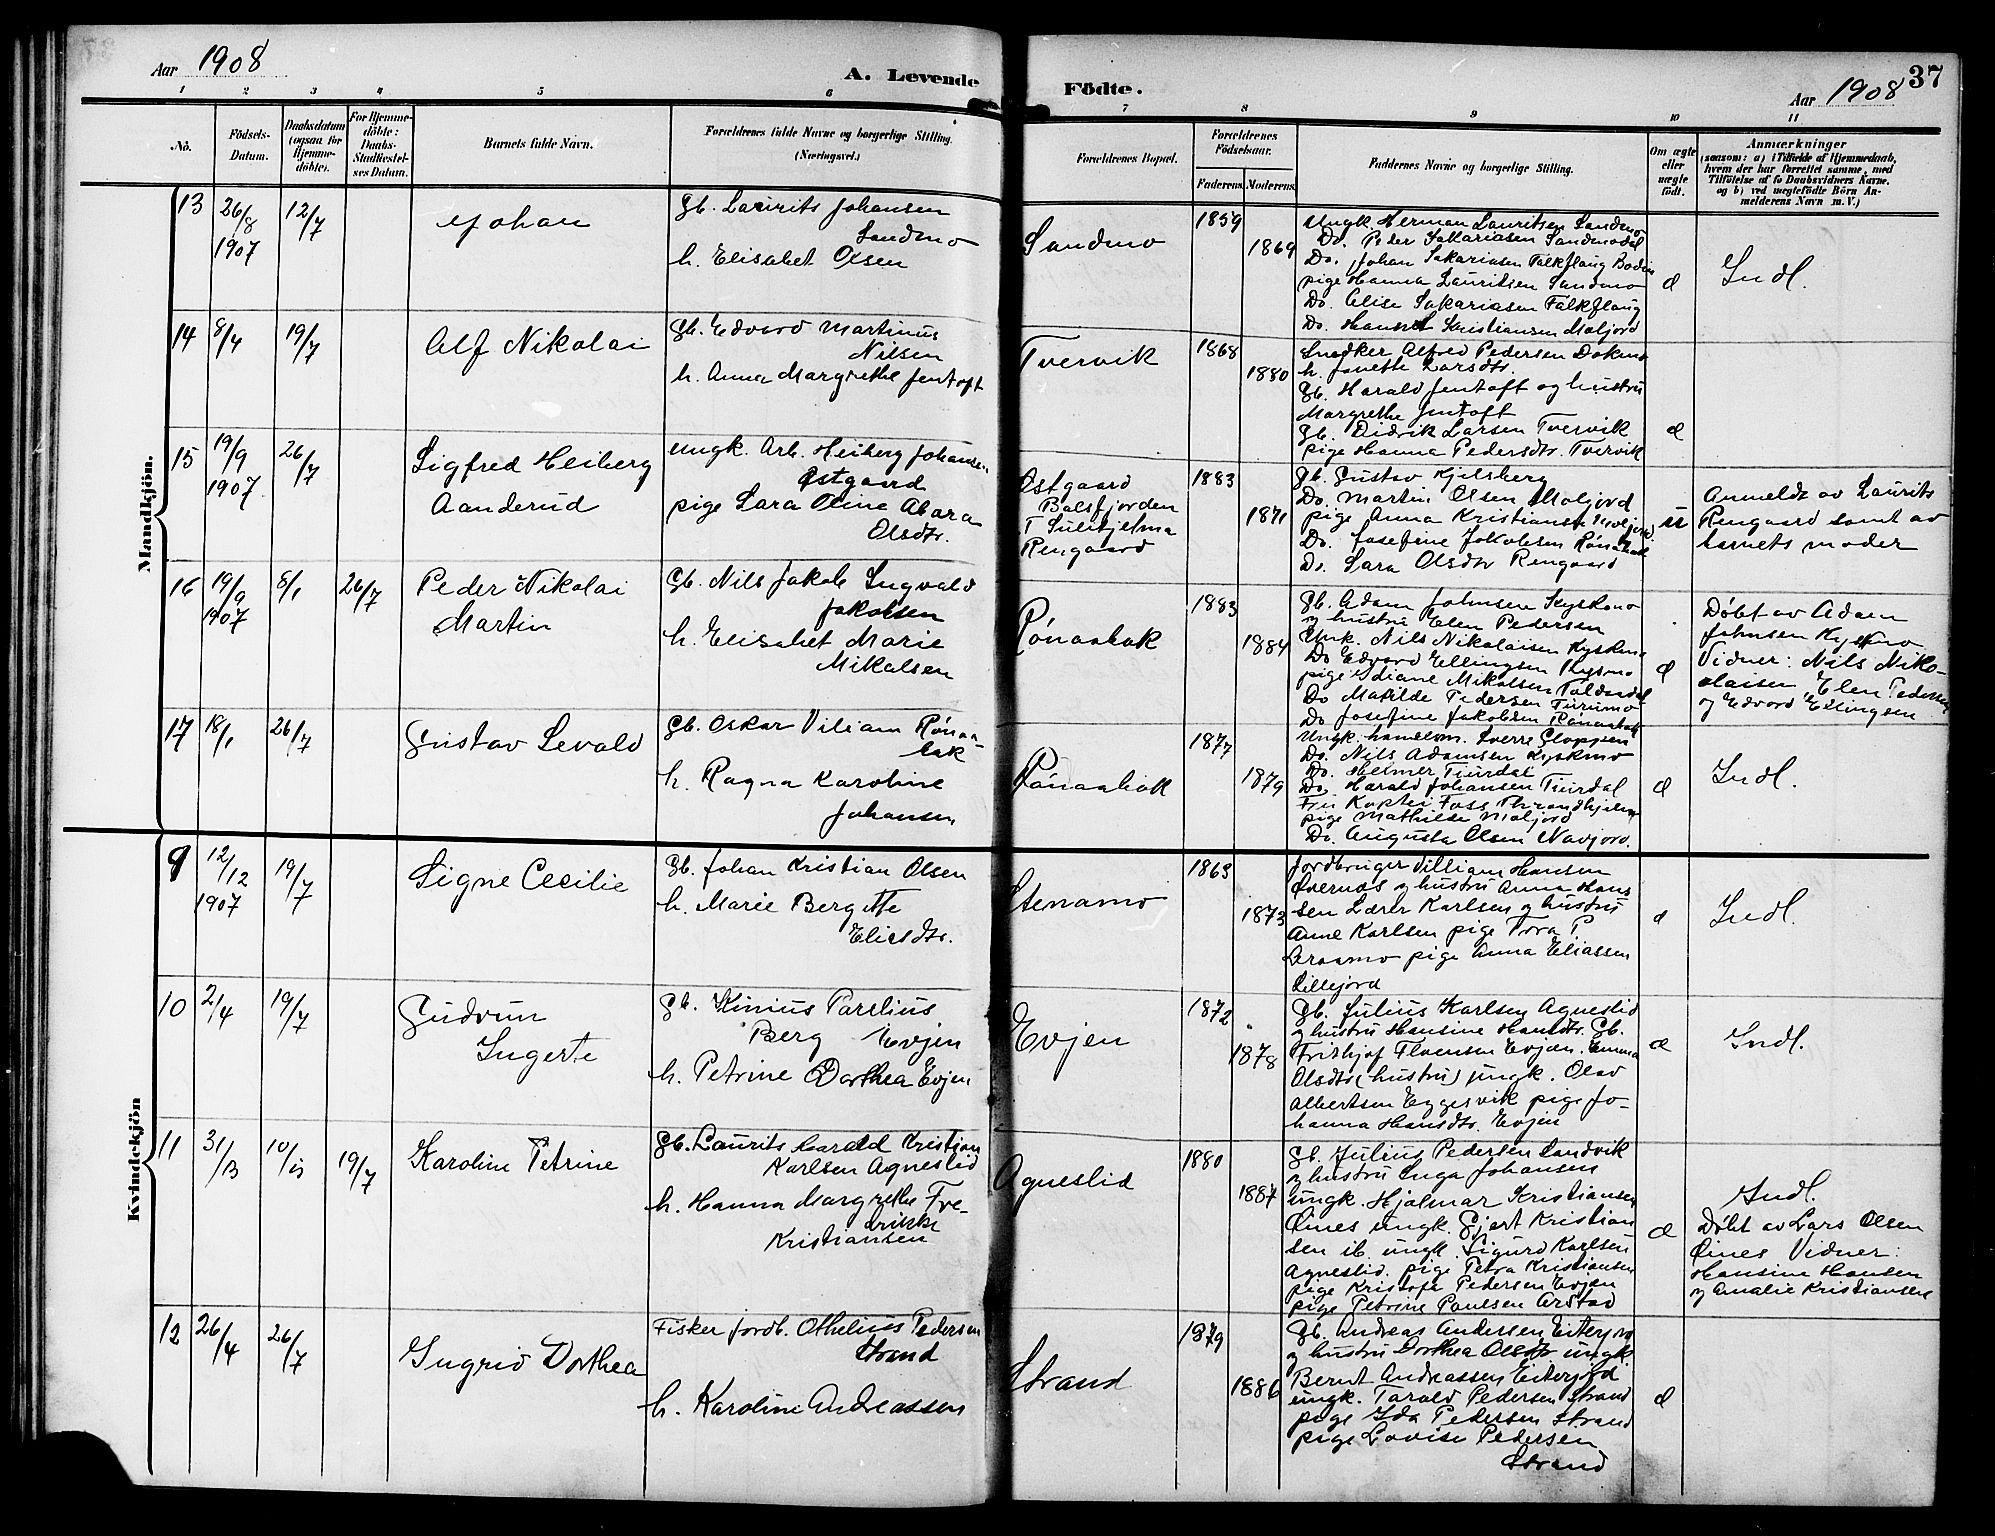 Aar 1908
A. Levende
Födte.
Aar 1908
37
1 2 3 4 5 6 7 8 9 10 11
No.
Födsels-
Datum.
Daabsdatum
(ogsaa for
Hjemme-
döbte).
For Hjemme-
döbte:
Daabs-
Stadfæstel-
ses Datum.
Barnets fulde Navn.
Forældrenes fulde Navne og borgerlige Stilling.
(Næringsvei.)
Forældrenes Bopæl.
Forældrenes
Födselsaar.
Faderens. Moderens.
Faddernes Navne og borgerlige Stilling.
Om ægte
eller
uægte
födt.
Anmærkninger
(saasom: a) i Tilfælde af Hjemmedaab,
hvem der har forrettet samme, med
Tilföielse af to Daabsvidners Navne,
og b) ved uægtefödte Börn An-
melderens Navn m. V.)
Mandkjön.
13
26/8
1907
12/7
Johan
Gb. Laurits Johansen
Sandmo
h. Elisabet Olsen
Sandmo
1859
1869
Ungk. Herman Lauritsen Sandmo
Do. Peder Sakariasen Sandmodal
Do. Johan Sakariasen Falkflaug Bodin
pige Hanna Lauritsen Sandmo
Do. Elise Sakariasen Falkflaug
Do. Hanna Kristiansen Moljord
Indl.
14
8/4
19/7
Alf Nikolai
Gb. Edvard Martinus
Nilsen
h. Anna Margrethe Jentoft
Tvervik
1868
1880
Snedker Alfred Pedersen Dokmo
h. Janette Larsdtr.
Gb. Harald Jentoft og hustru
Margrethe Jentoft
Gb. Didrik Larsen Tvervik
pige Hanna Pedersdtr. Tvervik
15
19/9
1907
26/7
Sigfred Heiberg
Aanderud
ungk. Arb. Heiberg Johansen
Østgaard
pige Sara Oline Abara
Olsdtr.
Østgaard
Balsfjorden
Sulitjelma
Rengaard
1883
1871
Gb. Gustav Kjelsberg
Do. Martin Olsen Moljord
pige Anna Kristianse Moljord
Do. Josefine Jakobsen Rønaabak
Do. Sara Olsdtr Rengaard
u
Anmeldt av Laurits
Rengaard samt av
barnets moder
16
19/9
1907
8/1
26/7
Peder Nikolai
Martin
Gb. Nils Jakob Ingvald
Jakobsen
h. Elisabet Marie
Mikalsen
Rønaabak
1883
1884
Gb. Adam Johnsen Kyskmo
og hustru Elen Pedersen
Unk. Nils Nikolaisen Kyskmo
Do Edvard Ellingsen Kysmo
pige Idiane Mikalsen
Do Matilde Pedersen
Do Josefine Jakobsen Rønaabak
Døbt av Adam
Johnsen Kyskmo
Vidner: Nils Niko-
olaisen Elen Pedersen
og Edvard Ellingsen
17
18/1
26/7
Gustav Sevald
Gb. Oskar Viliam Rønaa-
bak
h. Ragna Karoline
Johansen
Rønaabak
1877
1879
Ungk. handelsm. Sverre Gloppen
Do. Nils Adamsen Kyskmo
Do. Helmer Tiurdal
Do. Harald Johansen Tiurdal
Fru Foss
pige Mathilde Moljord
Do. Augusta Olsen Navjord.
Indl.
Kvindekjön
9
12/12
1907
19/7
Signe Cecilie
Gb. Johan Kristian Olsen
h. Marie Bergitte
Eliesdtr.
Stenamo
1863
1873
Jordbruger Villiam Hansen
Øvernæs og hustru Anna Han-
sen Lærer Karlsen og hustru
Anne Karlsen pige Tora P.
Graamo pige Anna Eliassen
Lillejord
Indl.
10
2/4
19/7
Gudrun
Ingerte
Gb. Kinius Parelius
Berg Evjen
h. Petrine Dorthea Evjen
Evjen
1872
1878
Gb. Julius Karlsen Agneslid
og hustru Hansine Hansdtr. Gb.
Fritjof Evjen. Emma
Olsdtr (hustru) ungk. Olav
Albertsen Eggesvik pige Jo-
hanna Hansdtr. Evjen
Indl.
11
31/13
19/7
Karoline Petrine
Gb. Laurits Harald Kristian
Karlsen Agneslid
h. Hanna Margrethe Fre-
drikke
Kristiansen
Agneslid
1880
1887
Gb. Julius Pedersen Sandvik
og hustru Inga Johansen
ungk. Hjalmar Kristiansen
Øines ungk. Gjert Kristian-
sen ib. ungk. Sigurd Karlsen
Agneslid. pige Petra Kristiansen
pige Pedersen Evjen
pige Petrine Paulsen Arstad
Indl.
Døbt av Lars Olsen
Øines Vidner:
Hansine Hansen
og Amalie Kristiansen
12
26/4
26/7
Ingrid Dorthea
Fisker jordb. Othelius Pedersen
Strand
h. Karoline Andreassen
Strand
1879
1886
Gb. Andreas Andersen Eiterjord
og hustru Dorthea Olsdtr ungk
Bernt Andreassen Eiterjord
ungk. Tarald Pedersen Strand
pige Ida Pedersen Strand
pige Lovise Pedersen
Strand